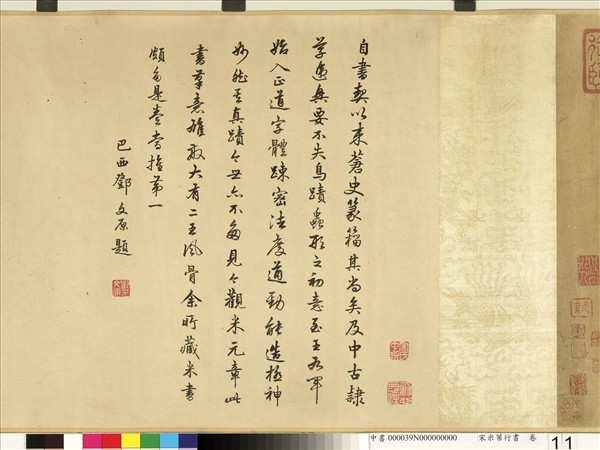 自書契以來蒼史篆籀其尚矣及中古隸
草迭興要不失鳥蹟蟲形之初意至王右軍
始入正道字體踈密法度遒勁能造極神
妙然其真蹟今世亦不多見今觀米元章此
書筆意雄放大有二王風骨余所藏米書
頗多是卷當推第一
巴西鄧文原題
中書 000039N000000000 宋米芾行書 卷
11